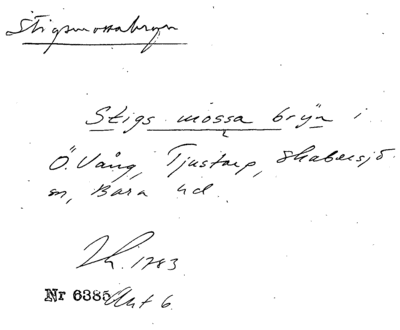 Stigsmossabryn
Stigs mossa brÿn i
Ö. Vång, Tjustorp, Skabersjö
sn, Bara hd.
Lh. 1783
Nr 6385 Akt 6.